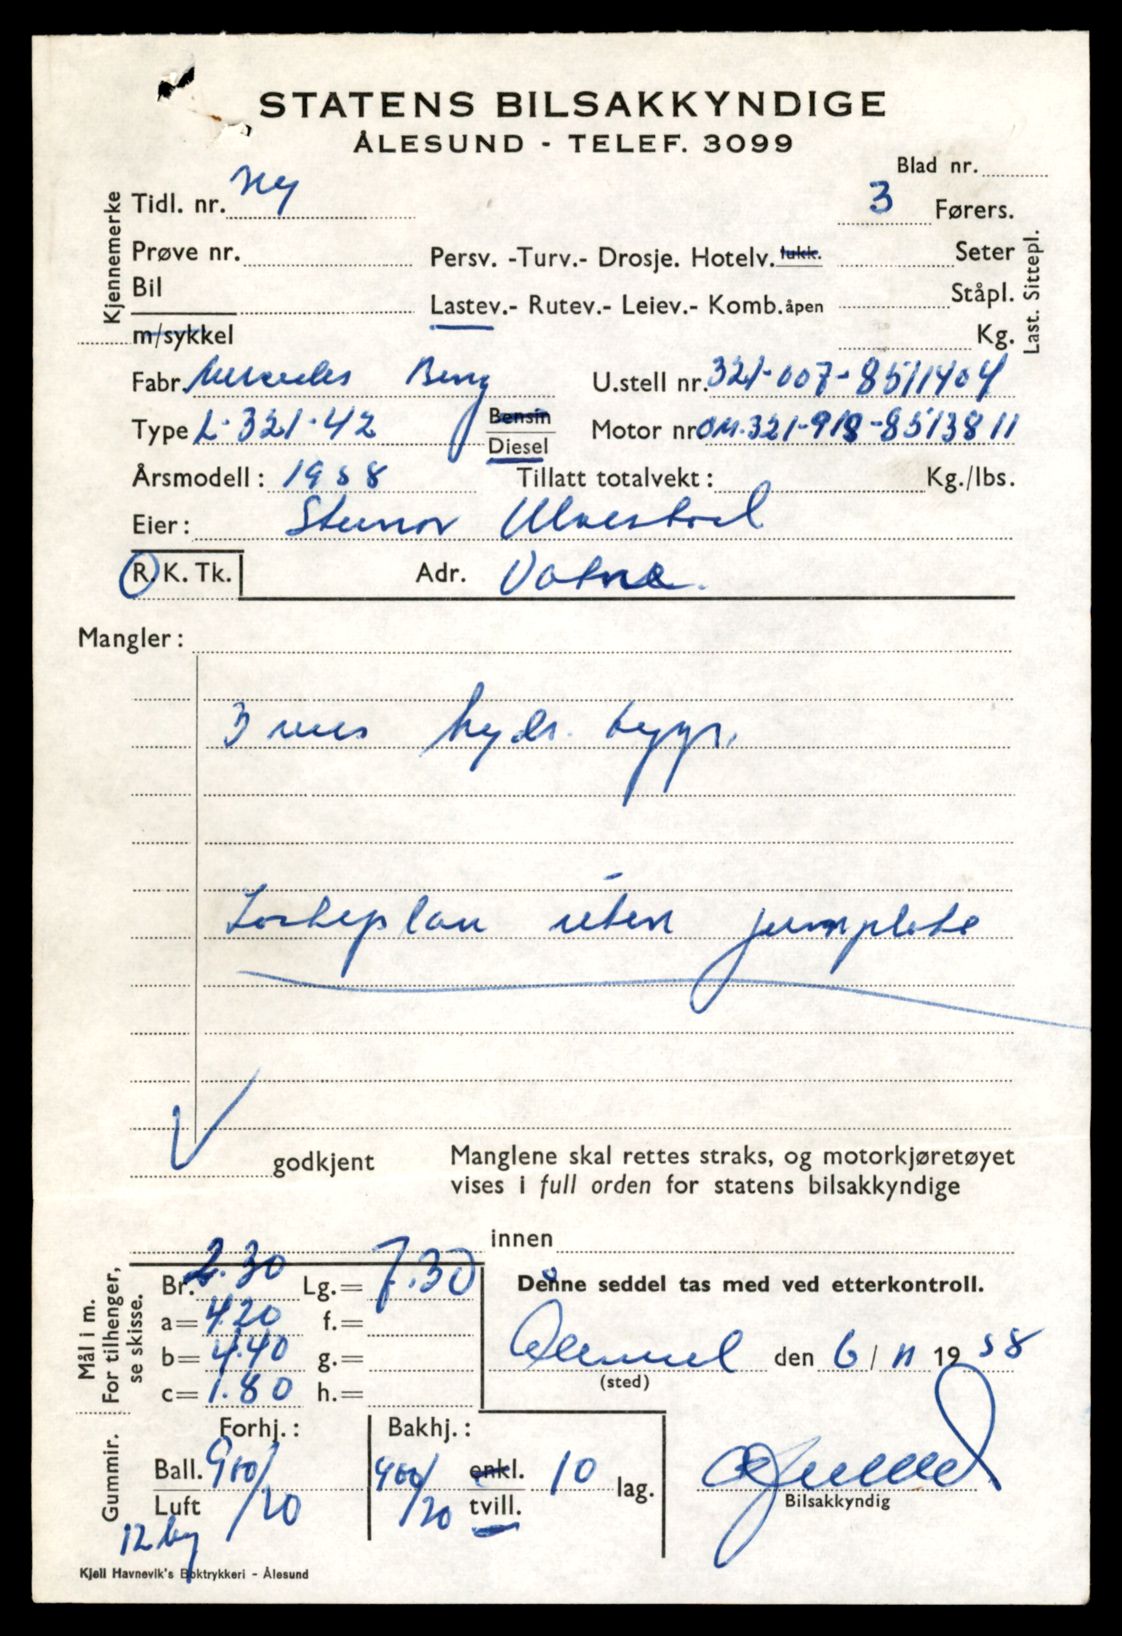 STATENS BILSAKKYNDIGE
ÅLESUND - TELEF. 3099
Blad nr.
Kjennemerke
Tidl. nr. Ny
3 Førers.
Prøve nr.
Persv. -Turv.- Drosje. Hotelv. lukk.
Seter
Bil
Lastev.- Rutev.- Leiev.- Komb. åpen
Ståpl.
Last. Sittepl.
m/sykkel
Kg.
Fabr. Mercedes Benz
U.stell nr. 321-007-8511404
Type L-321-42
Bensin
Diesel
Motor nr OM.321-918-8513811
Årsmodell: 1958
Tillatt totalvekt: Kg./lbs.
Eier: Steinar
R. K. Tk.
Adr. Vatne.
Mangler:
3 hydr.
Lasteplan uten
godkjent
Manglene skal rettes straks, og motorkjøretøyet
vises i full orden for statens bilsakkyndige
innen
Mål i m.
For tilhenger,
se skisse.
Br. 2.30 Lg.= 7.30
Denne seddel tas med ved etterkontroll.
a= 4.20 f.=
b= 4.40 g.=
c= 1.80 h.=
den 6/11 1958
(sted)
Gummir.
Forhj.: Bakhj.:
Ball. 900/20 900/20 enkl. 10 lag.
Luft tvill.
Bilsakkyndig
Kjell Havnevik's Boktrykkeri - Ålesund